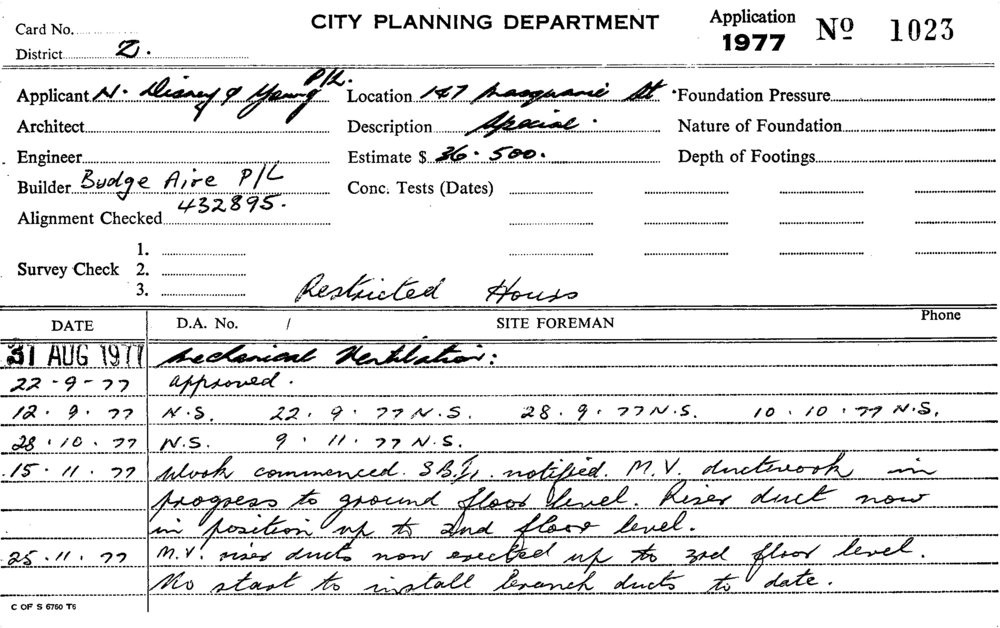 Card No. CITY PLANNING DEPARTMENT Application Nº 1023
District Z. 1977
Applicant N. Disney & Young P/L. Location 147 Macquarie St Foundation Pressure
Architect Description Special. Nature of Foundation
Engineer Estimate $ 36.500. Depth of Footings
Builder Budge Aire P/L Conc. Tests (Dates)
432895.
Alignment Checked
1.
Survey Check 2.
3. Restricted Hours
DATE D.A. No. / SITE FOREMAN Phone
31 AUG 1977 Mechanical Ventilation:
22-9-77 approved.
12.9.77 N.S. 22.9.77 N.S. 28.9.77 N.S. 10.10.77 N.S.
28.10.77 N.S. 9.11.77 N.S.
15.11.77 Work commenced. notified. M.V. ductwork in
progress to ground floor level. Riser duct now
in position up to 2nd floor level.
25.11.77 M.V. riser ducts now erected up to 3rd floor level.
No start to install branch ducts to date.
C OF S 6760 T6